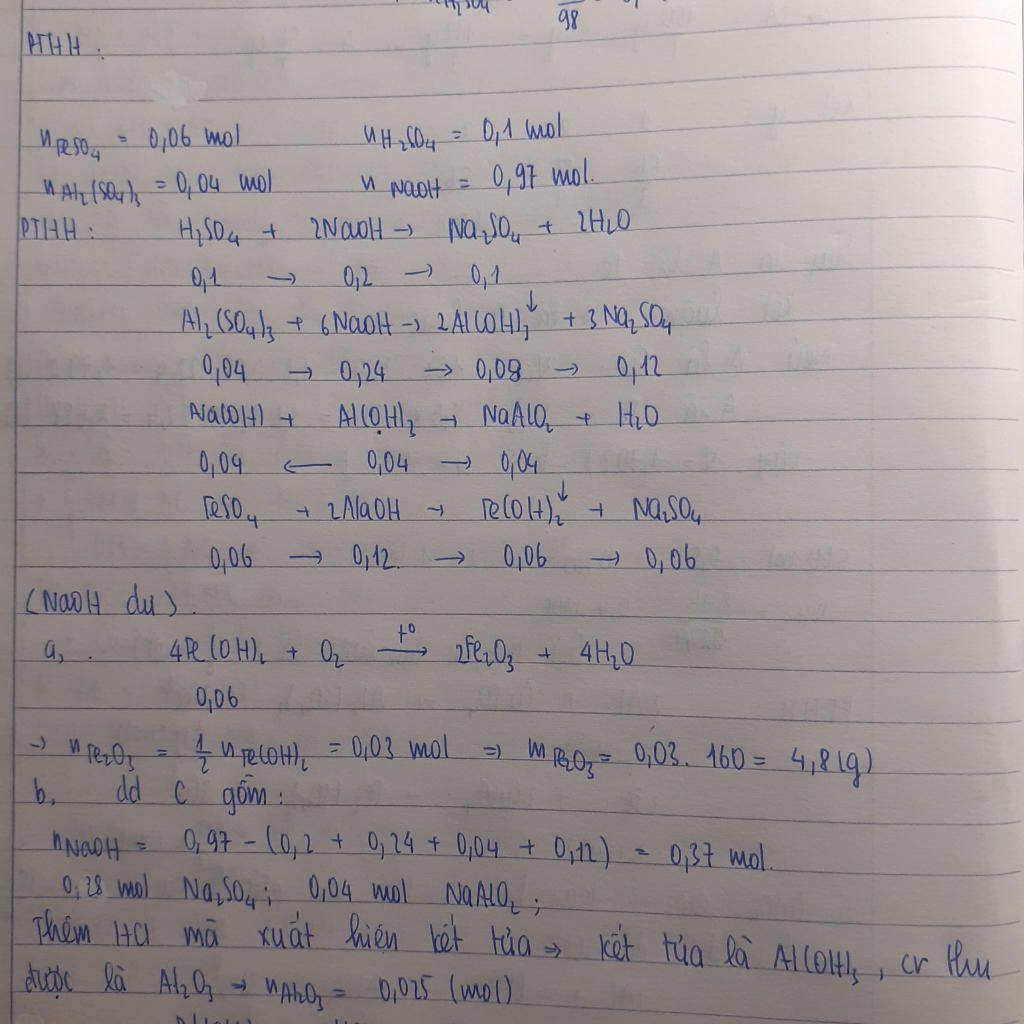 98
PTHH :
nFeSO₄ = 0,06 mol nH₂SO₄ = 0,1 mol
nAl₂(SO₄)₃ = 0,04 mol n NaOH = 0,97 mol.
PTHH : H₂SO₄ + 2NaOH → Na₂SO₄ + 2H₂O
0,1 → 0,2 → 0,1
Al₂(SO₄)₃ + 6NaOH → 2Al(OH)₃↓ + 3Na₂SO₄
0,04 → 0,24 → 0,08 → 0,12
Na(OH) + Al(OH)₃ → NaAlO₂ + H₂O
0,04 ← 0,04 → 0,04
FeSO₄ + 2NaOH → Fe(OH)₂↓ + Na₂SO₄
0,06 → 0,12 → 0,06 → 0,06
(NaOH dư).
a, . 4Fe(OH)₂ + O₂ →(t°) 2Fe₂O₃ + 4H₂O
0,06
→ nFe₂O₃ = 1/2 nFe(OH)₂ = 0,03 mol => mFe₂O₃ = 0,03. 160 = 4,8(g)
b, dd C gồm :
nNaOH = 0,97 - (0,2 + 0,24 + 0,04 + 0,12) = 0,37 mol.
0,28 mol Na₂SO₄ ; 0,04 mol NaAlO₂ ;
Thêm HCl mà xuất hiện kết tủa => kết tủa là Al(OH)₃ , cr thu
được là Al₂O₃ → nAl₂O₃ = 0,025 (mol)